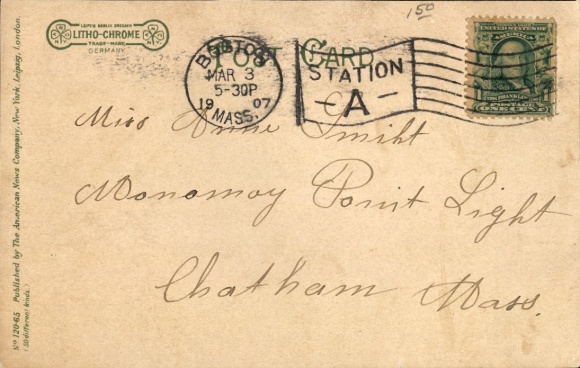 150
LEIPZIG BERLIN DRESDEN
LITHO-CHROME
TRADE-MARK
GERMANY
POST CARD
BOSTON
MAR 3
5-30P
1907
MASS.
STATION
-A-
UNITED STATES OF AMERICA
FRANKLIN
POSTAGE
ONE CENT
Miss Annie Smiht
Monomoy Point Light
Chatham Mass.
No 120-65 Published by The American News Company, New York, Leipzig, London.
(50 different kinds.)